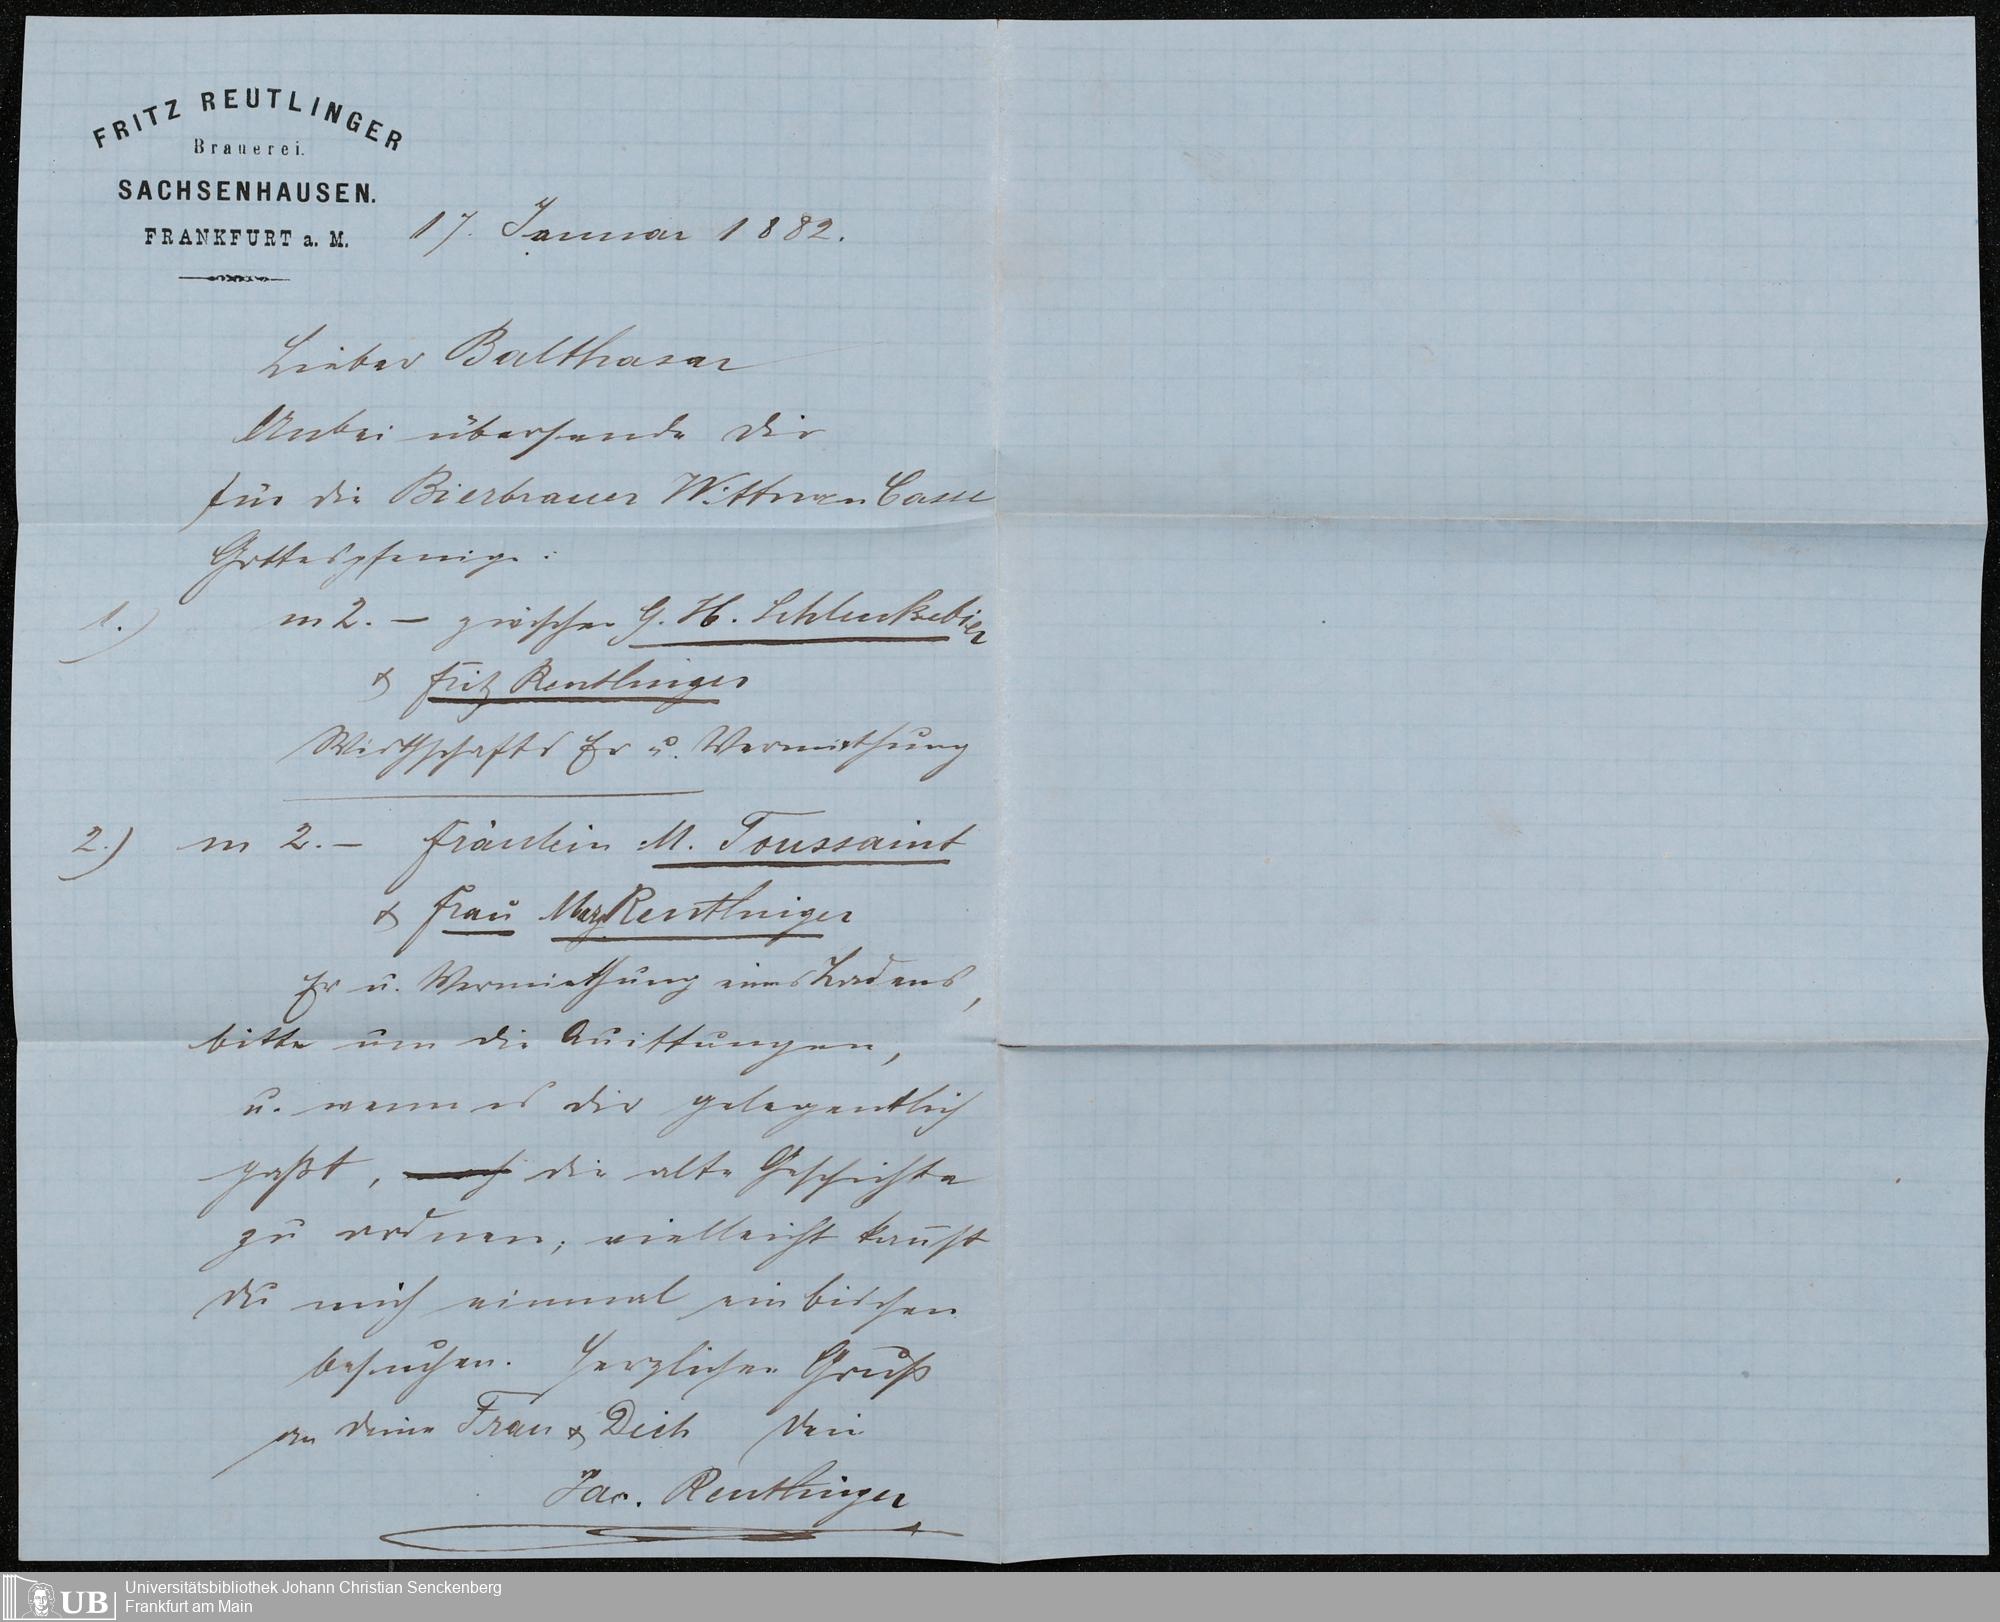 FRITZ REUTLINGER
Brauerei.
SACHSENHAUSEN.
FRANKFURT a. M.
17. Januar 1882.
Lieber Balthasar
Anbei übersende Dir
für die Bierbrauer Wittwen Casse
Gottespfenige:
1.) m 2. — zwischen G. H. Schluckebier
& Fritz Reutlinger
Wirthschafts Er u. Vermiethung
2.) m 2. — Fräulein M. Toussaint
& Frau Reutlinger
Er u. Vermiethung eines Ladens,
bitte um die Quittungen,
u. wenn es dir gelegentlich
paßt, die alte Geschichte
zu ordnen; vielleicht kanst
Du mich einmal ein bischen
besuchen. Herzlichen Gruß
an Deine Frau & Dich Dein
Jac. Reutlinger
UB
Universitätsbibliothek Johann Christian Senckenberg
Frankfurt am Main